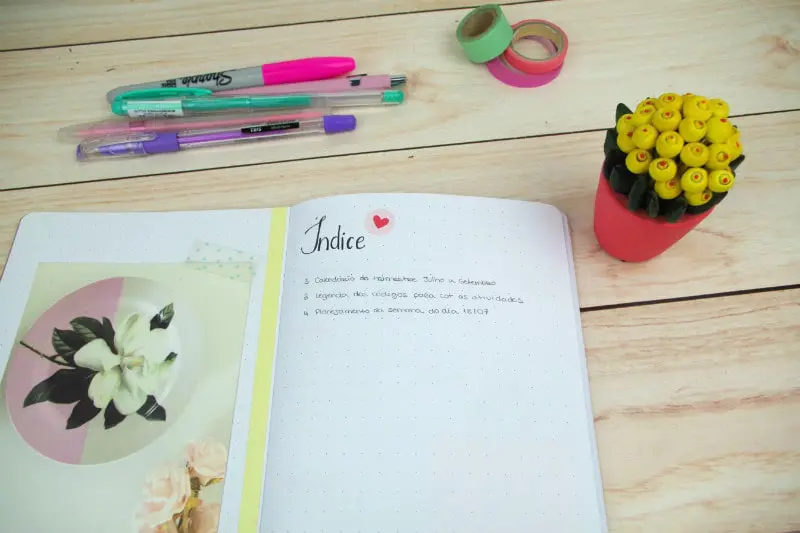 Sharpie
Índice
3 Calendário do trimestre Julho a Setembro
3 Legenda dos códigos para cat as atividades
4 Planejamento da semana do dia 18/07